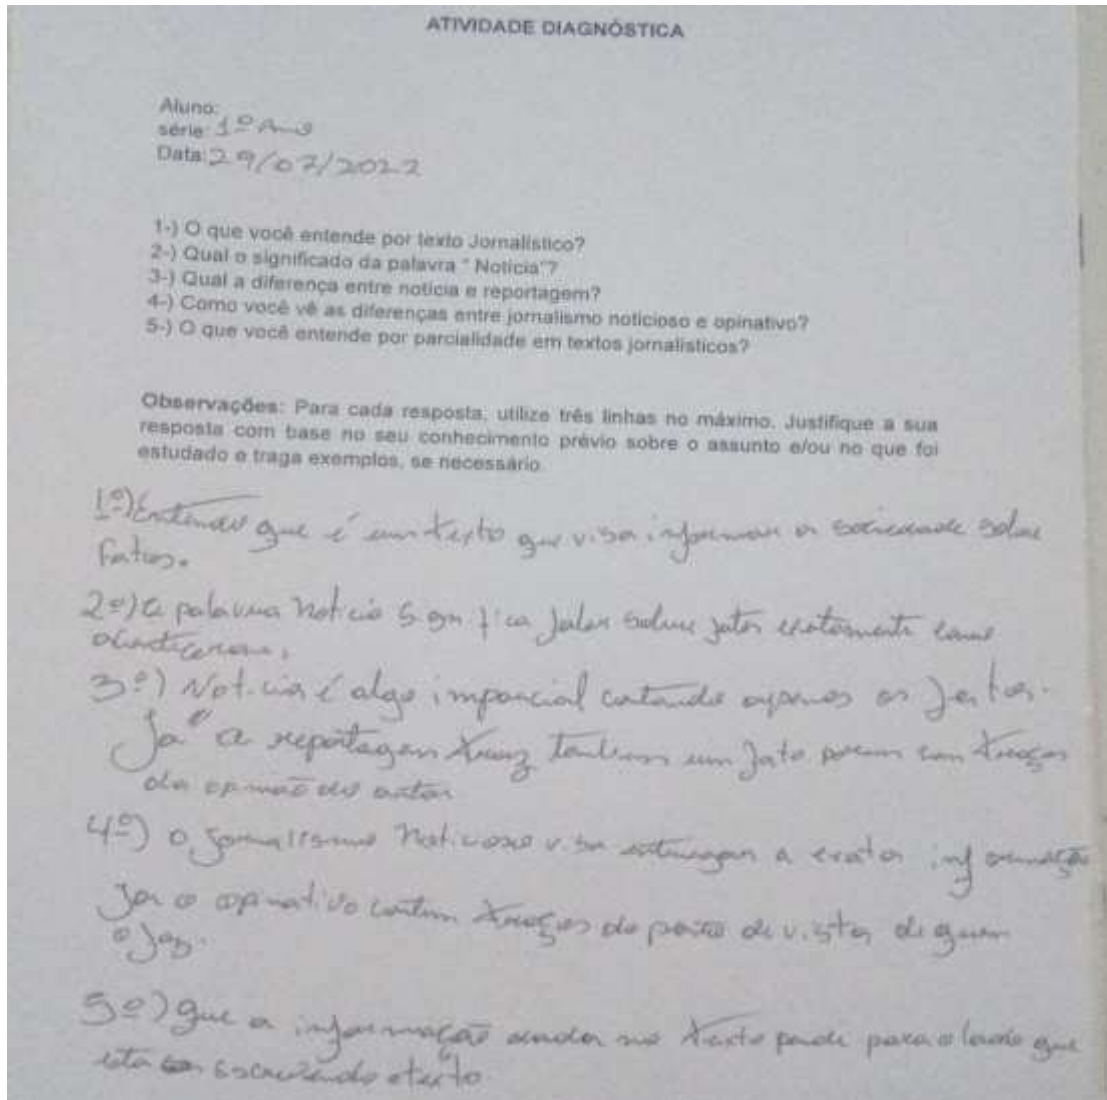 ATIVIDADE DIAGNÓSTICA
Aluno:
série: 1º Ano
Data: 29/07/2022
1-) O que você entende por texto Jornalístico?
2-) Qual o significado da palavra " Notícia"?
3-) Qual a diferença entre notícia e reportagem?
4-) Como você vê as diferenças entre jornalismo noticioso e opinativo?
5-) O que você entende por parcialidade em textos jornalísticos?
Observações: Para cada resposta, utilize três linhas no máximo. Justifique a sua
resposta com base no seu conhecimento prévio sobre o assunto e/ou no que foi
estudado e traga exemplos, se necessário.
1º) Entendo que é um texto que visa informar a sociedade sobre
fatos.
2º) a palavra noticia significa falar sobre fatos exatamente como
aconteceram.
3º) Noticia é algo imparcial contando apenas os fatos.
Já a reportagem traz tambem um fato porem com traços
da opinião do autor
4º) o jornalismo noticioso visa entregar a exata informação
Já o opinativo contem traços do ponto de vista de quem
o faz.
5º) que a informação dada no texto pende para o lado que
está escrevendo o texto